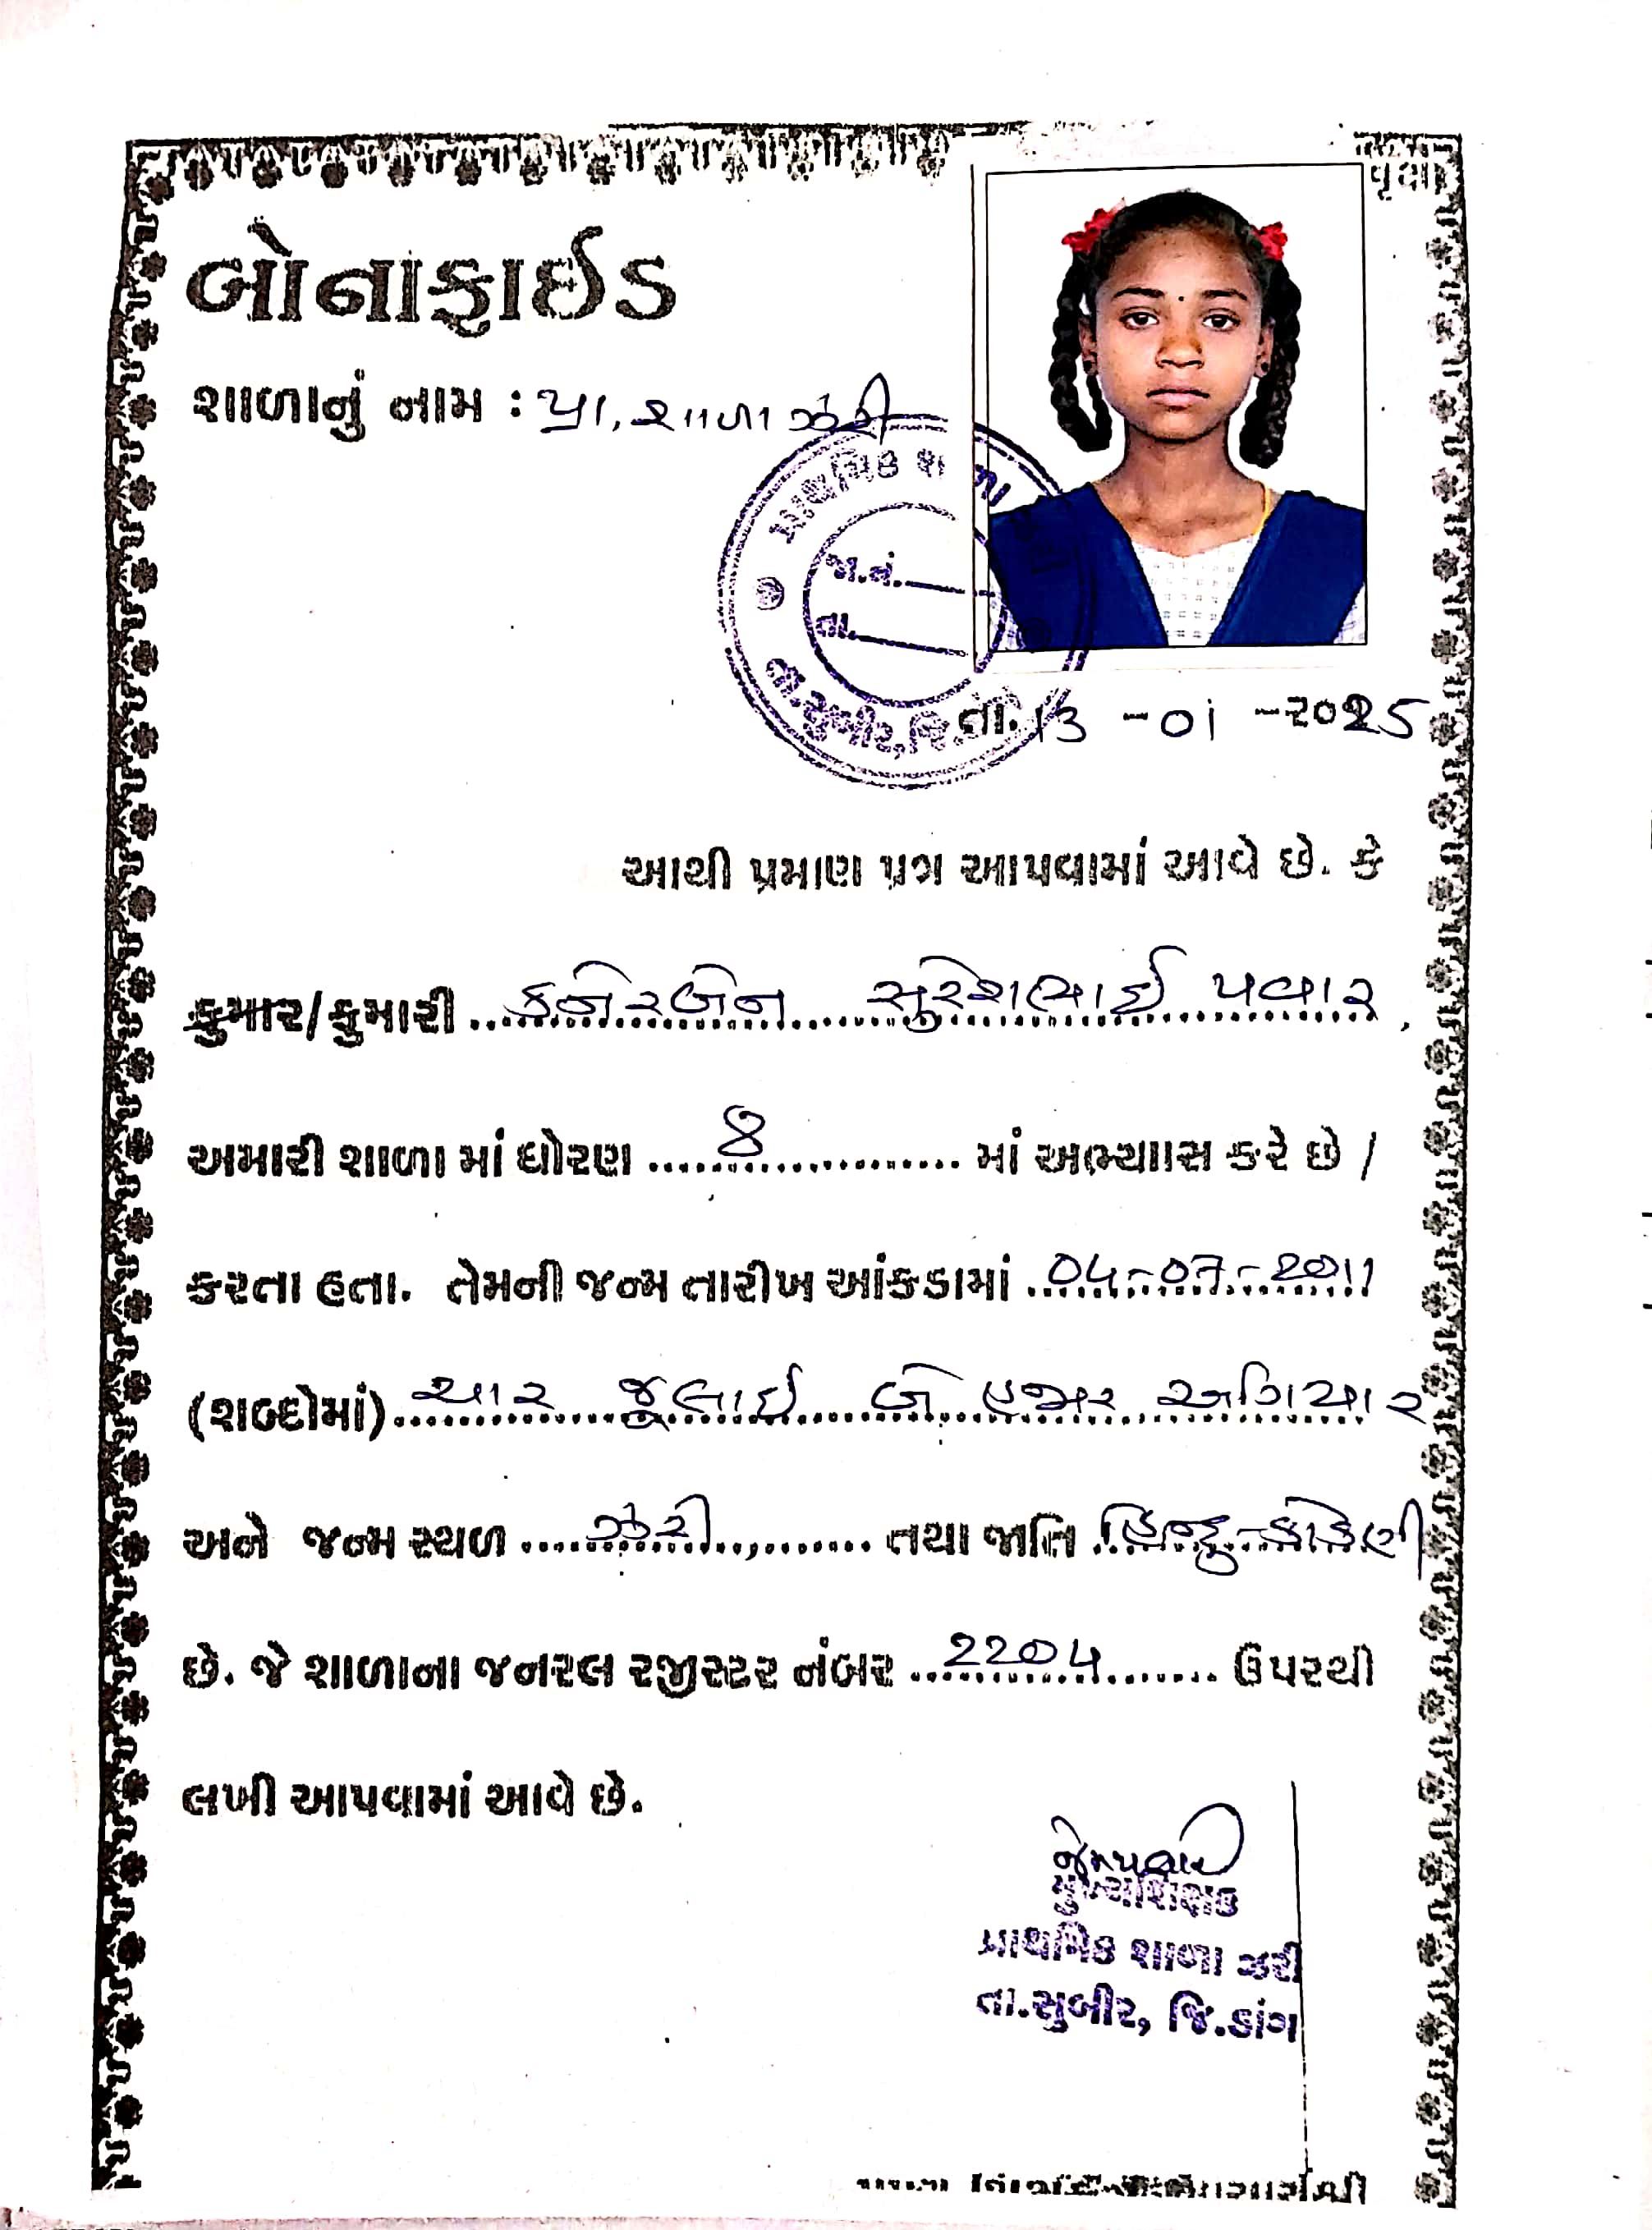 બોનાફાઈડ
શાળાનું નામ : પ્રા. શાળા ઝરી
પ્રાથમિક શાળા
જા.નં.
તા.
તા.સુબીર, જિ.
તા. 13 -01 -2025
આથી પ્રમાણ પત્ર આપવામાં આવે છે. કે
કુમાર/કુમારી સુરેશભાઈ પવાર
અમારી શાળા માં ધોરણ 8 માં અભ્યાસ કરે છે /
કરતા હતા. તેમની જન્મ તારીખ આંકડામાં 04-07-2011
(શબ્દોમાં) ચાર જૂલાઈ બે હજાર અગિયાર
અને જન્મ સ્થળ ઝરી તથા જાતિ હિન્દુ-કોકણી
છે. જે શાળાના જનરલ રજીસ્ટર નંબર 2204 ઉપરથી
લખી આપવામાં આવે છે.
મુખ્યશિક્ષક
પ્રાથમિક શાળા ઝરી
તા.સુબીર, જિ.ડાંગ